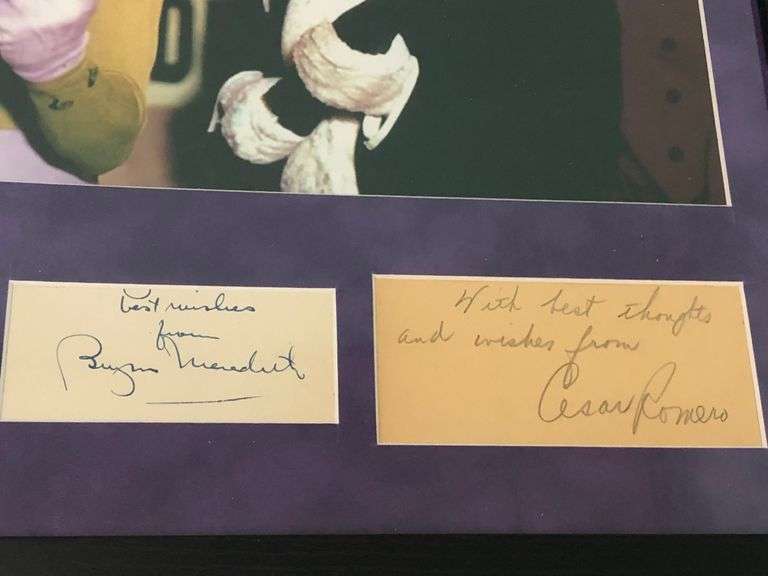 best wishes
from
Burgess Meredith
With best thoughts
and wishes from
Cesar Romero